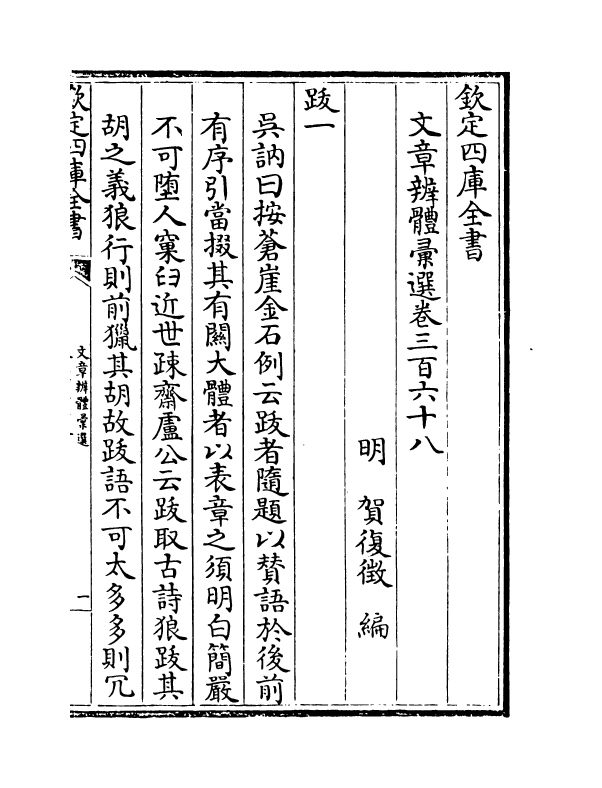 欽定四庫全書
文章辨體彚選卷三百六十八
明 賀復徵 編
跋一
吳訥曰按蒼崖金石例云跋者隨題以賛語於後前
有序引當掇其有關大體者以表章之須明白簡嚴
不可墮人窠臼近世疎齋盧公云跋取古詩狼跋其
胡之義狼行則前獵其胡故跋語不可太多多則冗
欽定四庫全書
文章辨體彚選
一